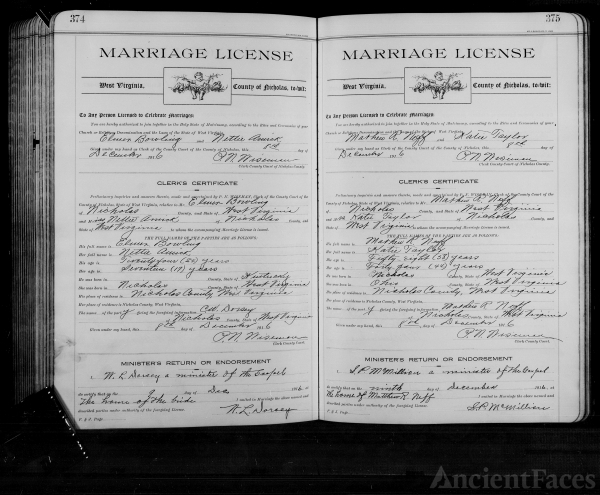 374
MARRIAGE LICENSE
West Virginia, County of Nicholas, to-wit:
To Any Person Licensed to Celebrate Marriages:
You are hereby authorized to join together in the Holy State of Matrimony, according to the Rites and Ceremonies of your
Church or Religious Denomination and the Laws of the State of West Virginia,
Elmer Bowling and Nettie Amick
Given under my hand, as Clerk of the County Court of the County of Nicholas, this 8th day of
December 1916 P. N. Wiseman
Clerk County Court of Nicholas County.
CLERK'S CERTIFICATE
Elmer Bowling
of Nicholas County, and State of West Virginia
and Nettie Amick of Nicholas County, and
State of West Virginia to whom the accompanying Marriage License is issued.
THE FULL NAMES OF THE PARTIES ARE AS FOLLOWS:
His full name is Elmer Bowling
Her full name is Nettie Amick
His age is Twenty four (24) years
Her age is Seventeen (17) years
He was born in County, State of Kentucky
She was born in Nicholas County, State of West Virginia
His place of residence is Nicholas County West Virginia
Her place of residence is Nicholas County, West Virginia.
The name of the party giving the foregoing information Dorsey
Nicholas County, State of West Virginia
Given under my hand, this 8th day of December 1916
P. N. Wiseman
Clerk County Court.
MINISTER'S RETURN OR ENDORSEMENT
I, W. L. Dorsey a minister of the Gospel
do certify that on the 9 day of Dec 1916 at
The home of the bride I united in Marriage the above named and
described parties under authority of the foregoing License.
W. L. Dorsey
375
MARRIAGE LICENSE
West Virginia, County of Nicholas, to-wit:
To Any Person Licensed to Celebrate Marriages:
You are hereby authorized to join together in the Holy State of Matrimony, according to the Rites and Ceremonies of your
Church or Religious Denomination and the Laws of the State of West Virginia,
Mathew R. Neff and Katie Taylor
Given under my hand, as Clerk of the County Court of the County of Nicholas, this 8th day of
December 1916 P. N. Wiseman
Clerk County Court of Nicholas County.
CLERK'S CERTIFICATE
Mathew R. Neff
of Nicholas County, and State of West Virginia
and Katie Taylor of Nicholas County, and
State of West Virginia to whom the accompanying Marriage License is issued.
THE FULL NAMES OF THE PARTIES ARE AS FOLLOWS:
His full name is Mathew R. Neff
Her full name is Katie Taylor
His age is Fifty eight (58) years
Her age is Forty four (44) years
He was born in Nicholas County, State of West Virginia
She was born in Ohio County, State of West Virginia
His place of residence is Nicholas County, West Virginia
Her place of residence is Nicholas County, West Virginia.
The name of the party giving the foregoing information Mathew R. Neff
Nicholas County, State of West Virginia
Given under my hand, this 8th day of December 1916
P. N. Wiseman
Clerk County Court.
MINISTER'S RETURN OR ENDORSEMENT
I, S. P. McMillion a minister of the Gospel
do certify that on the ninth day of December 1916 at
the home of Matthew R. Neff I united in Marriage the above named and
described parties under authority of the foregoing License.
S. P. McMillion
AncientFaces